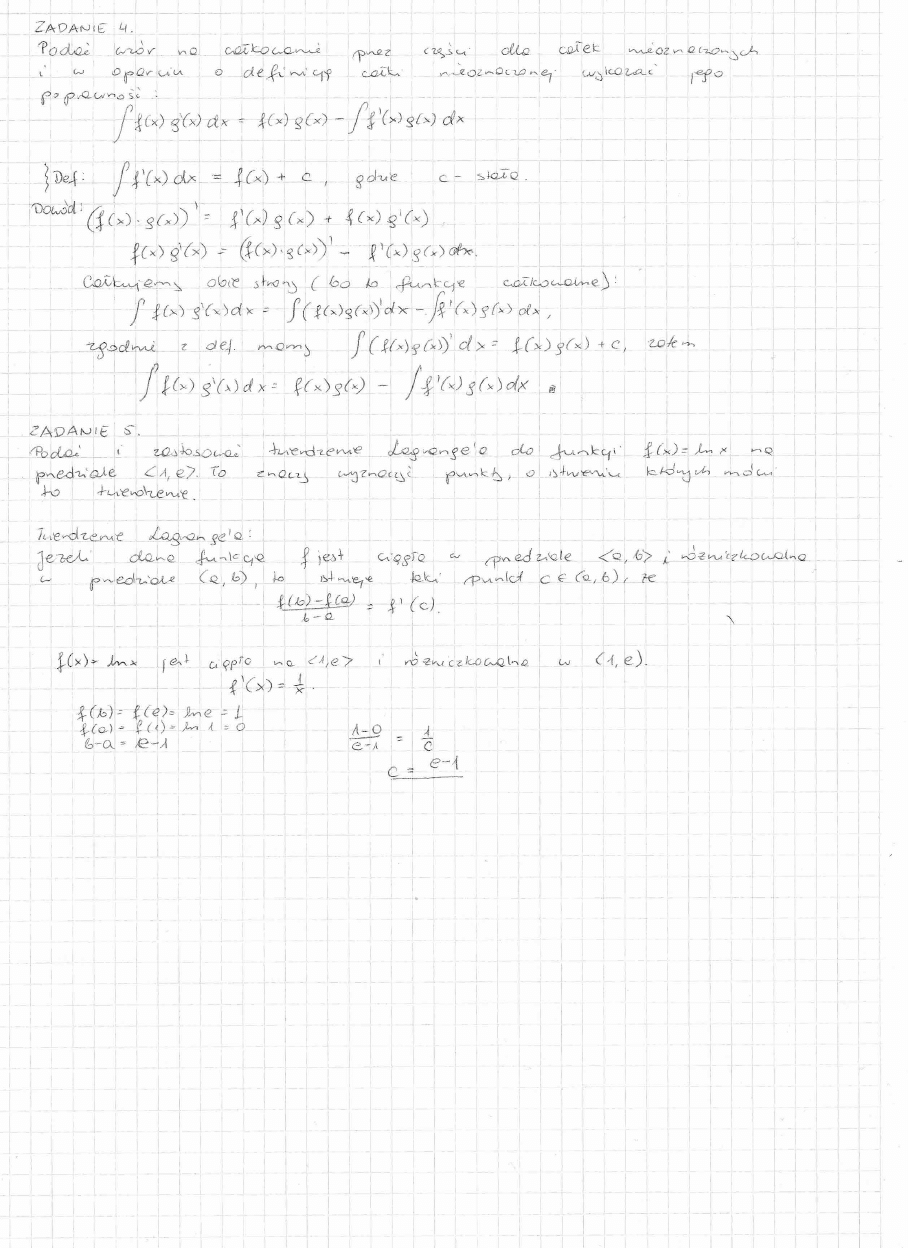 ZADANIE 4.
Podać wzór na całkowanie przez części dla całek nieoznaczonych
i w oparciu o definicję całki nieoznaczonej wykazać jego
poprawność:
∫ f(x) g'(x) dx = f(x) g(x) − ∫ f'(x) g(x) dx
Def: ∫ f'(x) dx = f(x) + c, gdzie c - stała.
Dowód: (f(x)·g(x))' = f'(x) g(x) + f(x) g'(x)
f(x) g'(x) = (f(x)·g(x))' − f'(x) g(x)
Całkujemy obie strony (bo to funkcje całkowalne):
∫ f(x) g'(x) dx = ∫ (f(x)g(x))' dx − ∫ f'(x) g(x) dx,
zgodnie z def. mamy ∫ (f(x)g(x))' dx = f(x) g(x) + c, zatem
∫ f(x) g'(x) dx = f(x) g(x) − ∫ f'(x) g(x) dx
ZADANIE 5.
Podać i zastosować twierdzenie Lagrange'a do funkcji f(x) = ln x na
przedziale <1, e>. To znaczy wyznaczyć punkty, o istnieniu których mówi
to twierdzenie.
Twierdzenie Lagrange'a:
Jeżeli dana funkcja f jest ciągła w przedziale <a, b> i różniczkowalna
w przedziale (a, b), to istnieje taki punkt c ∈ (a, b), że
(f(b) − f(a))/(b − a) = f'(c).
f(x) = ln x jest ciągła na <1, e> i różniczkowalna w (1, e).
f'(x) = 1/x.
f(b) = f(e) = ln e = 1
f(a) = f(1) = ln 1 = 0
b − a = e − 1
(1−0)/(e−1) = 1/c
c = e−1